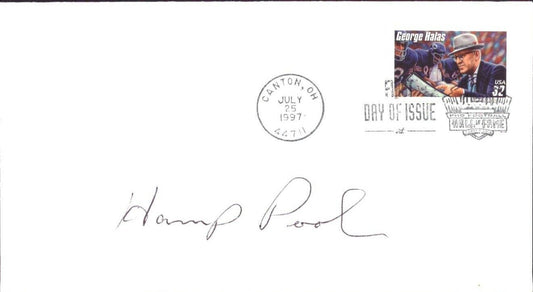 George Halas
USA
32
CANTON, OH
JULY
25
1997
44711
DAY OF ISSUE
PRO FOOTBALL
HALL OF FAME
Hamp Pool